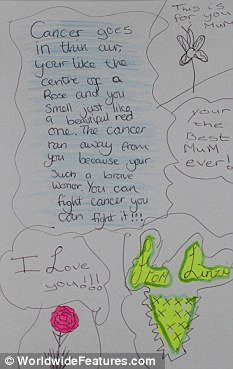 Cancer goes
in thin air,
your like the
centre of a
Rose and you
Smell just like
a beautiful red
one. The cancer
ran away from
you because your
Such a brave
Women. You can
fight cancer you
can fight it!!!
This is
for you
Mum
your
the
Best
MuM
ever!
I Love
you!!!
From
© WorldwideFeatures.com